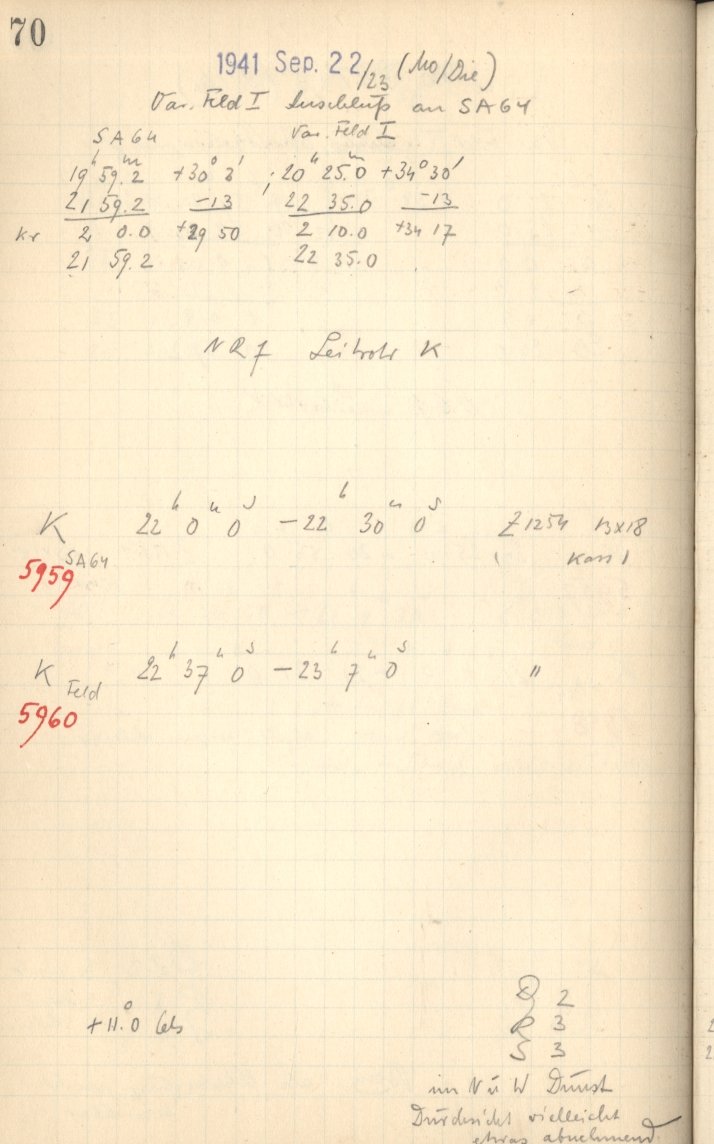 70
1941 Sep. 22/23 (Mo/Die)
Var. Feld I Anschluß an SA64
SA64 Var. Feld I
19h 59.m2 +30° 3' ; 20h 25.m0 +34° 30'
21 59.2 -13 22 35.0 -13
Kr 2 0.0 +29 50 2 10.0 +34 17
21 59.2 22 35.0
NR7 Leitrohr K
K SA64 22h 0m 0s - 22h 30m 0s Z1254 13x18
5959 ( Kass )
K Feld 22h 37m 0s - 23h 7m 0s "
5960
+11.°0 Cels
Q 2
R 3
S 3
im N u W Dunst
Durchsicht vielleicht
etwas abnehmend